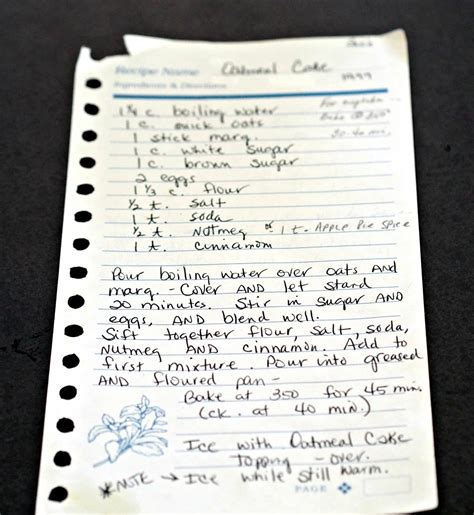 Recipe Name Oatmeal Cake
1999
Ingredients & Directions
1 1/4 c. boiling water
For
1 c. quick oats
Bake @ 350°
1 stick marg.
30-40 min.
1 c. white sugar
1 c. brown sugar
2 eggs
1 1/3 c. flour
1/2 t. salt
1 t. soda
1/2 t. nutmeg or 1 t. Apple Pie Spice
1 t. cinnamon
Pour boiling water over oats AND
marg. - Cover AND let stand
20 minutes. Stir in sugar AND
eggs, AND blend well.
Sift together flour, salt, soda,
nutmeg AND cinnamon. Add to
first mixture. Pour into greased
AND floured pan -
Bake at 350 for 45 min.
(ck. at 40 min.)
Ice with Oatmeal Cake
Topping - over.
*NOTE → Ice while still warm.
PAGE